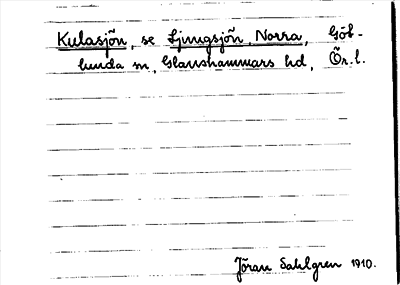 Kulasjön, se Ljungsjön, Norra, Göt-
lunda sn, Glanshammars hd, Ör.l.
Jöran Sahlgren 1910.